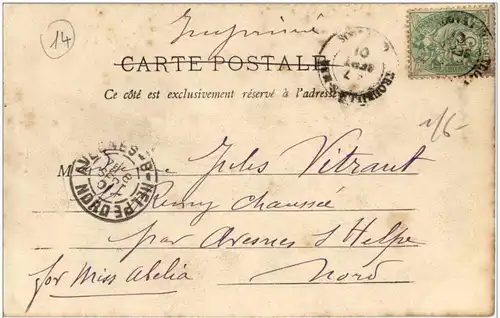 Imprimé
14
CARTE POSTALE
Ce côté est exclusivement réservé à l'adresse
1/6-
M Jules Vitrant
Rémy Chaussée
par Avesnes s/Helpe
for Miss Abelia
Nord
AVESNES-S-HELPE
NORD